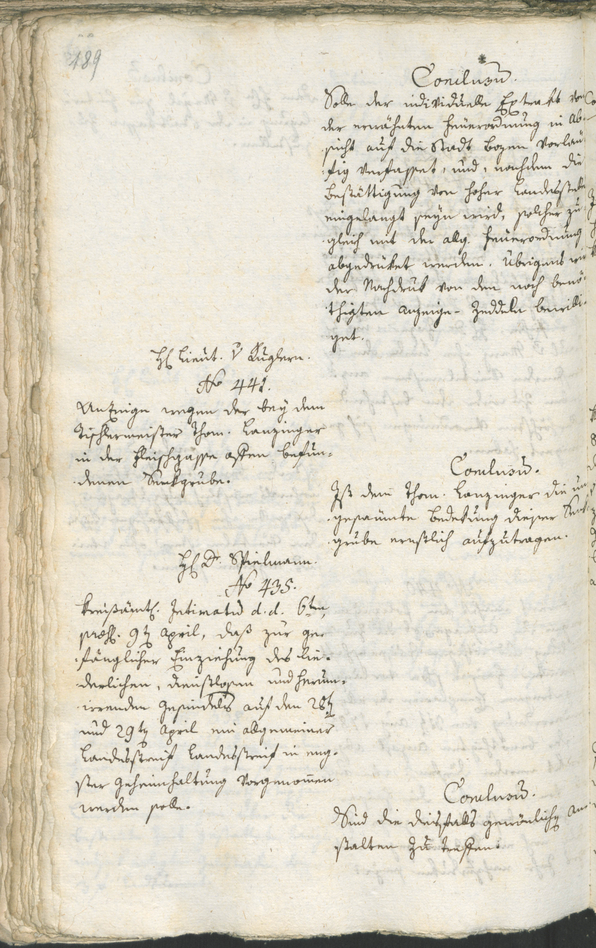 189
Conclusum.
Solle der individuelle Extrakt von
der ernähnten Feuerordnung in Ab-
sicht auf die Stadt Bozen vorläu-
fig verfasset, und, nachdem die
Bestättigung von hoher Landesstelle
eingelangt seyn wird, solcher zu-
gleich mit der allg. Feuerordnung
abgedrüket werden. Übrigens wird
der Nachdruk von den noch benö-
thigten Anzeige-Zeddeln bewilli-
get.
H Lieut. v Kuglern.
No 441.
Anzeige wegen der bey dem
Tischlermeister Thom. Lanzinger
in der Fleischgasse offen befun-
denen Senkgrube.
Conclusum.
Ist dem Thom. Lanzinger die un-
gesäumte Bedekung dieser Senk-
grube ernstlich aufzutragen.
H Dr. Spielmann.
No 435.
Kreisämtl. Intimatum d. d. 6ten,
præs. 9t April, daß zur ge-
fänglicher Einziehung des lie-
derlichen, dienstlosen und herum-
irrenden Gesindels auf den 28t
und 29t April ein allgemeiner
Landesstreif Landesstreif in eng-
ster Geheimhaltung vorgenommen
werden solle.
Conclusum.
Sind die diesfalls gewönliche An-
stalten zu treffen.